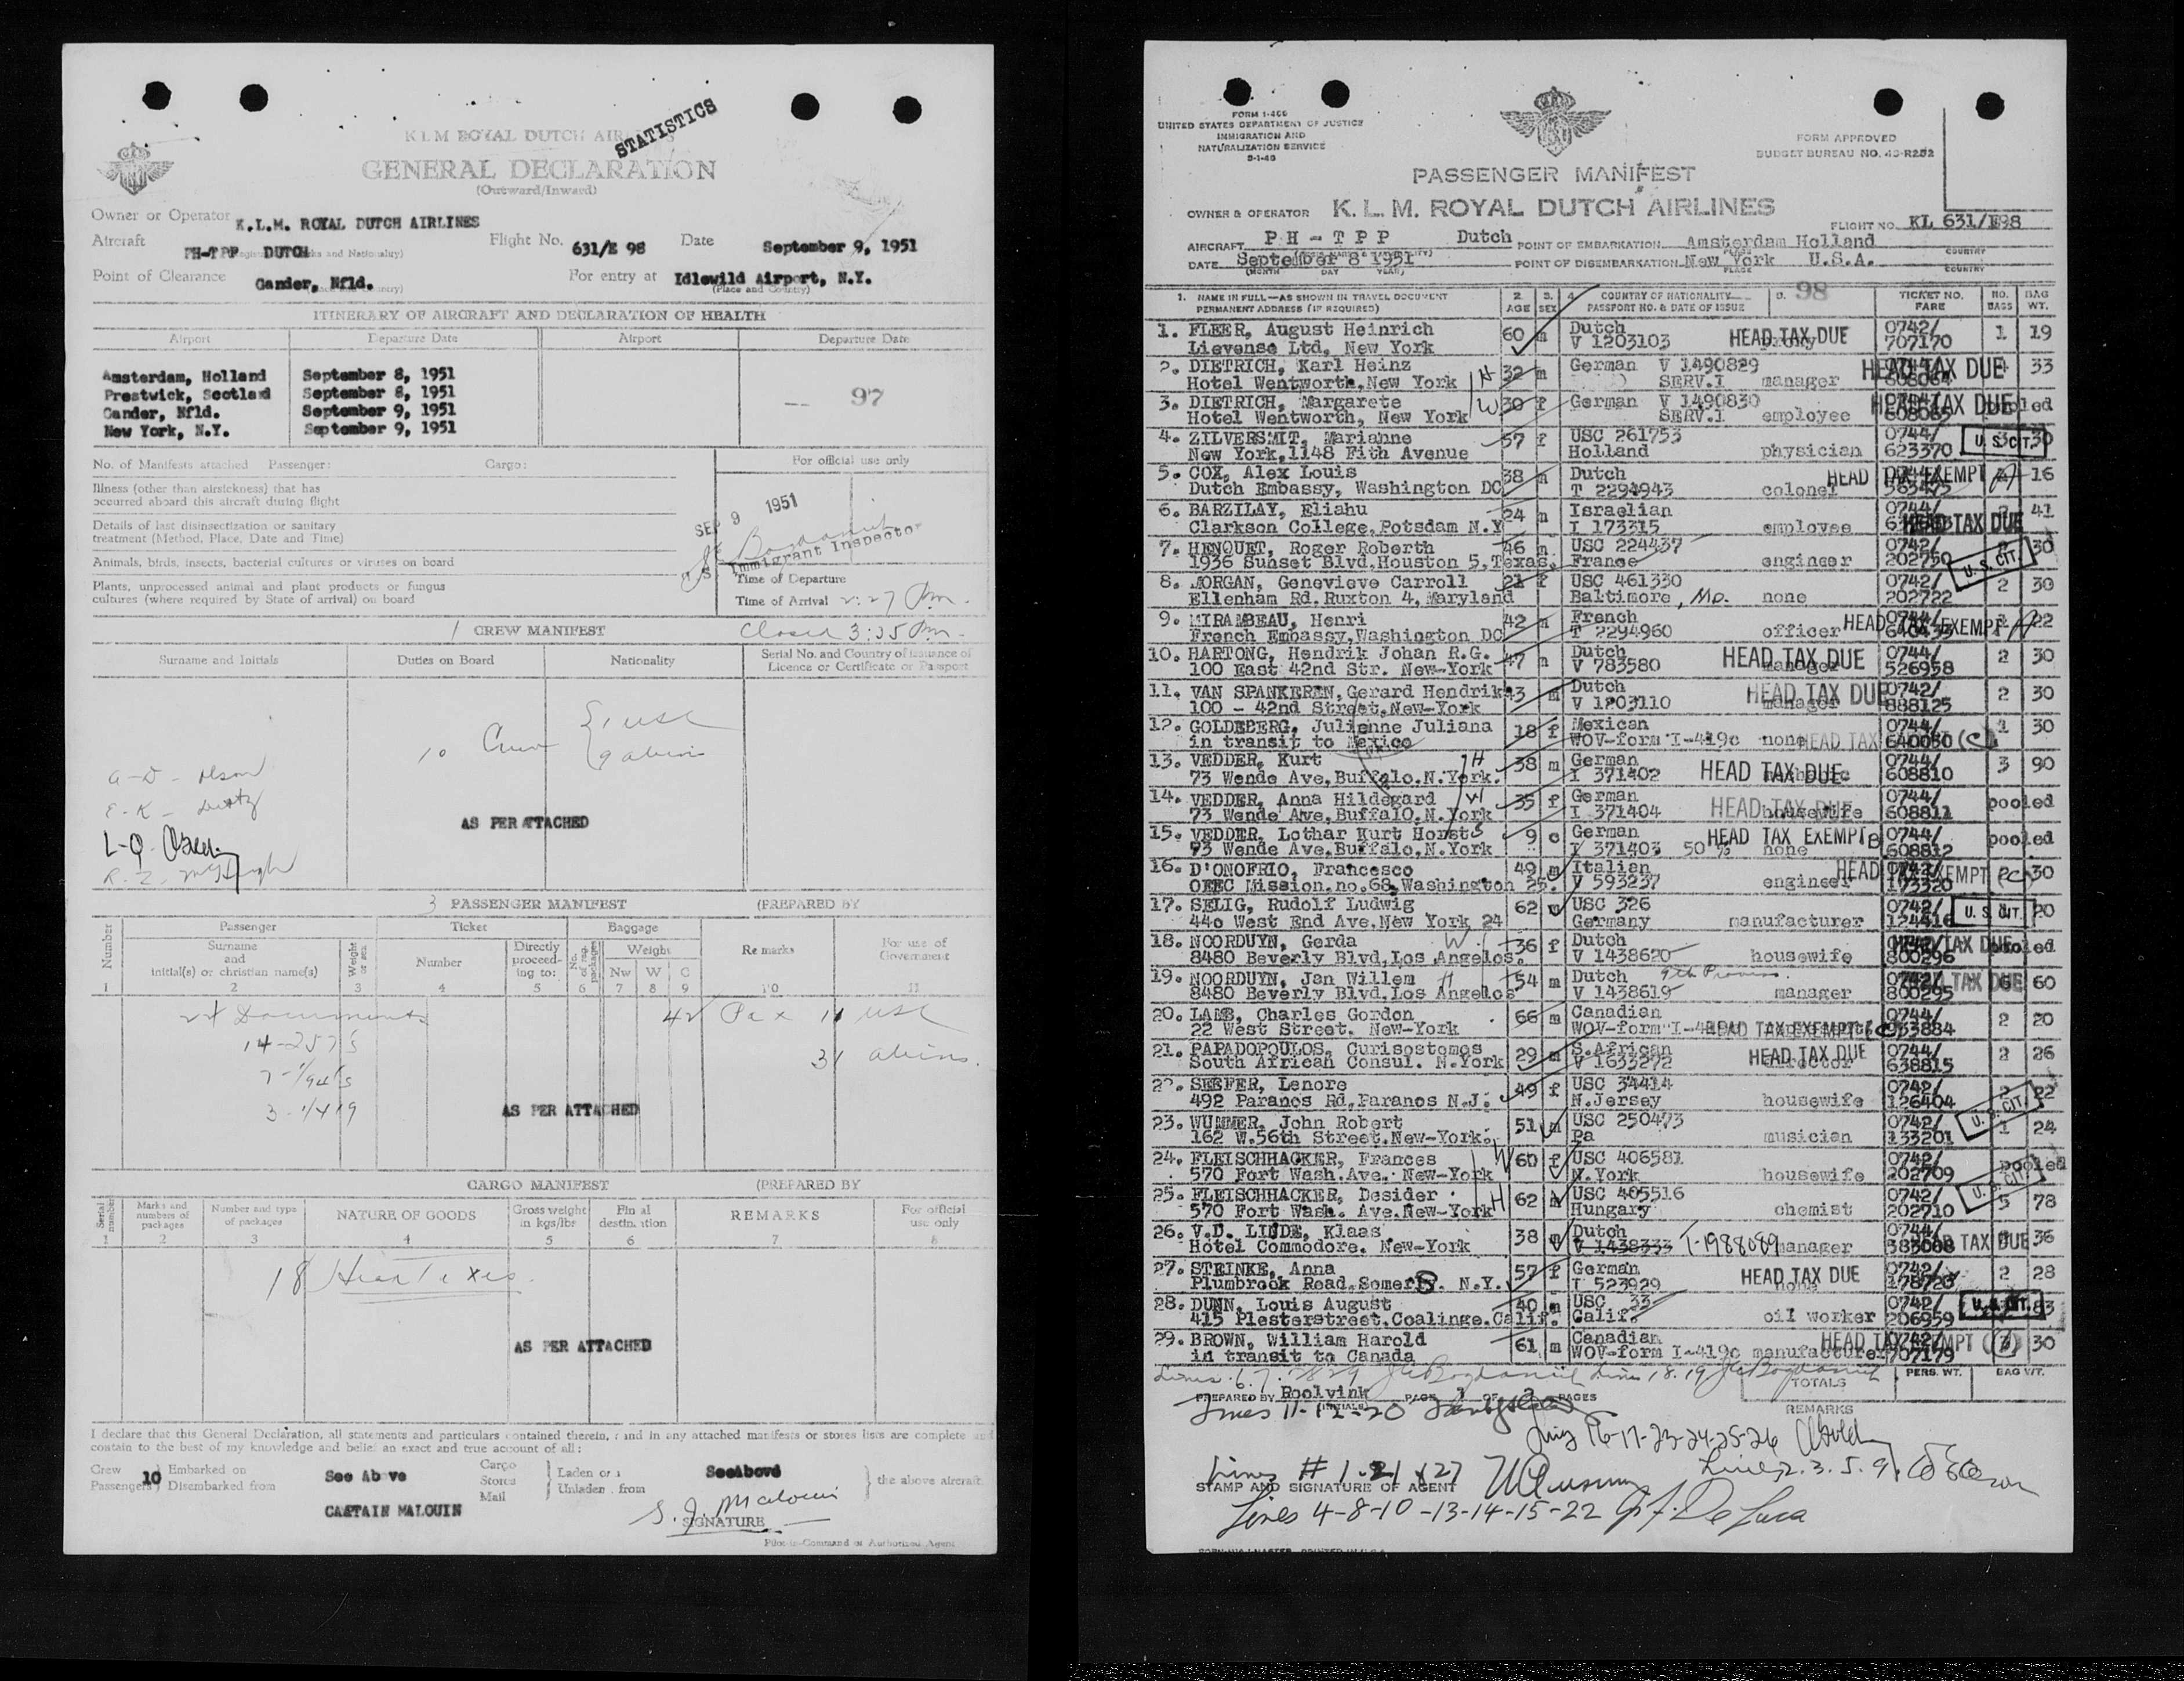 STATISTICS
K L M ROYAL DUTCH AIRLINES
GENERAL DECLARATION
(Outward/Inward)
Owner or Operator K.L.M. ROYAL DUTCH AIRLINES
Aircraft PH-TPP DUTCH Flight No. 631/E 98 Date September 9, 1951
Point of Clearance Gander, Nfld. For entry at Idlewild Airport, N.Y.
(Place and Country)
ITINERARY OF AIRCRAFT AND DECLARATION OF HEALTH
Airport Departure Date Airport Departure Date
Amsterdam, Holland September 8, 1951
Prestwick, Scotland September 8, 1951
Gander, Nfld. September 9, 1951
New York, N.Y. September 9, 1951
97
No. of Manifests attached Passenger: Cargo:
For official use only
Illness (other than airsickness) that has
occurred aboard this aircraft during flight
Details of last disinsectization or sanitary
treatment (Method, Place, Date and Time)
SEP 9 1951
Immigrant Inspector
Animals, birds, insects, bacterial cultures or viruses on board
Plants, unprocessed animal and plant products or fungus
cultures (where required by State of arrival) on board
Time of Departure
Time of Arrival 2:27 Pm.
1 CREW MANIFEST Closed 3:35 Pm.
Surname and Initials Duties on Board Nationality Serial No. and Country of issuance of
Licence or Certificate or Passport
10 Crew 1 usc
9 aliens
AS PER ATTACHED
3 PASSENGER MANIFEST (PREPARED BY
Number Passenger Ticket Baggage Remarks For use of
Government
Surname
and
initial(s) or christian name(s)
Weight
Number Directly
proceed-
ing to:
Weight
Nw W C
1 2 3 4 5 6 7 8 9 10 11
24 Documents 42 Pax 11 usc
14-257's 31 aliens.
3-1419
AS PER ATTACHED
CARGO MANIFEST (PREPARED BY
Serial number Marks and
numbers of
packages
Number and type
of packages
NATURE OF GOODS Gross weight
in kgs/lbs
Final
destination
REMARKS For official
use only
1 2 3 4 5 6 7 8
18 Head Taxes.
AS PER ATTACHED
I declare that this General Declaration, all statements and particulars contained therein, and in any attached manifests or stores lists are complete and
contain to the best of my knowledge and belief an exact and true account of all:
Crew 10 Embarked on See Above Cargo Laden on See Above the above aircraft
Passengers Disembarked from Stores Unladen from
Mail
CAPTAIN MALOUIN
S. J. Malouin
SIGNATURE
Pilot-in-Command or Authorized Agent
FORM I-466
UNITED STATES DEPARTMENT OF JUSTICE
IMMIGRATION AND
NATURALIZATION SERVICE
FORM APPROVED
BUDGET BUREAU NO. 43-R252
PASSENGER MANIFEST
OWNER & OPERATOR K. L. M. ROYAL DUTCH AIRLINES
FLIGHT NO. KL 631/E98
AIRCRAFT PH-TPP Dutch POINT OF EMBARKATION Amsterdam Holland
DATE September 8 1951 POINT OF DISEMBARKATION New York U.S.A.
1. NAME IN FULL—AS SHOWN IN TRAVEL DOCUMENT 2. 3. 4. COUNTRY OF NATIONALITY 5. 98 TICKET NO. NO. BAG
PERMANENT ADDRESS (IF REQUIRED) AGE SEX PASSPORT NO. & DATE OF ISSUE FARE BAGS WT.
1. FLEER, August Heinrich 60 m Dutch HEAD TAX DUE 0742/ 1 19
Lievense Ltd, New York V 1203103 707170
2. DIETRICH, Karl Heinz H 32 m German V 1490829 HEAD TAX DUE 33
Hotel Wentworth, New York SERV.I manager 608064
3. DIETRICH, Margarete W 30 f German V 1490830 HEAD TAX DUE pooled
Hotel Wentworth, New York SERV.I employee 608065
4. ZILVERSMIT, Marianne 57 f USC 261753 0744/ U. S. CIT. 30
New York, 1148 Fifth Avenue Holland physician 623370
5. COX, Alex Louis 38 m Dutch HEAD TAX EXEMPT A 16
Dutch Embassy, Washington DC T 2294943 colonel
6. BARZILAY, Eliahu 24 m Israelian 0744/ 41
Clarkson College, Potsdam N.Y I 173315 employee HEAD TAX DUE
7. HENQUET, Roger Roberth 46 m USC 224437 0742/ 30
1936 Sunset Blvd, Houston 5, Texas. France engineer 202750 U. S. CIT.
8. MORGAN, Genevieve Carroll 21 f USC 461330 0742/ 2 30
Ellenham Rd, Ruxton 4, Maryland Baltimore, Md. none 202722
9. MIRAMBEAU, Henri 42 m French HEAD TAX EXEMPT A 22
French Embassy, Washington DC T 2294960 officer
10. HARTONG, Hendrik Johan R.G. 47 m Dutch HEAD TAX DUE 0744/ 2 30
100 East 42nd Str. New-York V 783580 manager 526958
11. VAN SPANKEREN, Gerard Hendrik 43 m Dutch HEAD TAX DUE 0742/ 2 30
100 - 42nd Street, New-York V 1203110 manager 888125
12. GOLDEBERG, Julienne Juliana 18 f Mexican 0744/ 1 30
in transit to Mexico WOV-form I-419c none HEAD TAX 640050 (C)
13. VEDDER, Kurt H 38 m German 0744/ 3 90
73 Wende Ave, Buffalo, N.York. I 371402 HEAD TAX DUE 608810
14. VEDDER, Anna Hildegard W 35 f German 0744/ pooled
73 Wende Ave, Buffalo, N.York I 371404 HEAD TAX DUE housewife 608811
15. VEDDER, Lothar Kurt Horst S 9 c German HEAD TAX EXEMPT B 0744/ pooled
73 Wende Ave, Buffalo, N.York I 371403 50 % none 608812
16. D'ONOFRIO, Francesco 49 m Italian HEAD TAX EXEMPT 30
OEEC Mission, no.68, Washington 25. V 593237 engineer 173320
17. SELIG, Rudolf Ludwig 62 m USC 326 0742/ U. S. CIT. 20
440 West End Ave, New York 24 Germany manufacturer 124416
18. NOORDUYN, Gerda W 36 f Dutch HEAD TAX DUE pooled
8480 Beverly Blvd, Los Angelos. V 1438620 housewife 800296
19. NOORDUYN, Jan Willem H 54 m Dutch 9th Proviso. TAX DUE 60
8480 Beverly Blvd, Los Angelos V 1438619 manager 800295
20. LAMB, Charles Gordon 66 m Canadian 0744/ 2 20
22 West Street. New-York WOV-form I-419c HEAD TAX EXEMPT 633884
21. PAPADOPOULOS, Curisostomos 29 m S.African HEAD TAX DUE 0744/ 2 26
South African Consul. N.York V 1633272 director 638815
22. SEEFER, Lenore 49 f USC 34414 0742/ 2 22
492 Paranos Rd, Paranos N.J. N.Jersey housewife 126404 U. S. CIT.
23. WUMMER, John Robert 51 m USC 250473 0742/ 1 24
162 W.56th Street. New-York. Pa musician 133201
24. FLEISCHHACKER, Frances W 60 f USC 406581 0742/ pooled
570 Fort Wash. Ave. New-York N.York housewife 202709 U. S. CIT.
25. FLEISCHHACKER, Desider H 62 m USC 405516 0742/ 5 78
570 Fort Wash. Ave. New-York Hungary chemist 202710
26. V.D. LINDE, Klaas 38 m Dutch 0744/ TAX DUE 36
Hotel Commodore. New-York V 1438333 T-1988089 manager 383008
27. STEINKE, Anna 57 f German HEAD TAX DUE 0742/ 2 28
Plumbrook Road, Somers. N.Y. I 523929 none 178720
28. DUNN, Louis August 40 m USC 33 0742/ U. S. CIT. 83
415 Plesterstreet, Coalinge. Calif. Calif. oil worker 206959
29. BROWN, William Harold 61 m Canadian HEAD TAX EXEMPT 30
in transit to Canada WOV-form I-419c manufacturer 707179
TOTALS PERS. WT. BAG WT.
PREPARED BY Roolvink PAGE 1 OF 2 PAGES
REMARKS
Lines 11-12-20
Lines 16-17-23-24-25-26
Lines # 1-21 & 27 Lines 2.3.5.9.
STAMP AND SIGNATURE OF AGENT
Lines 4-8-10-13-14-15-22 G. F. De Luca